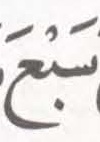 سَبْعَ